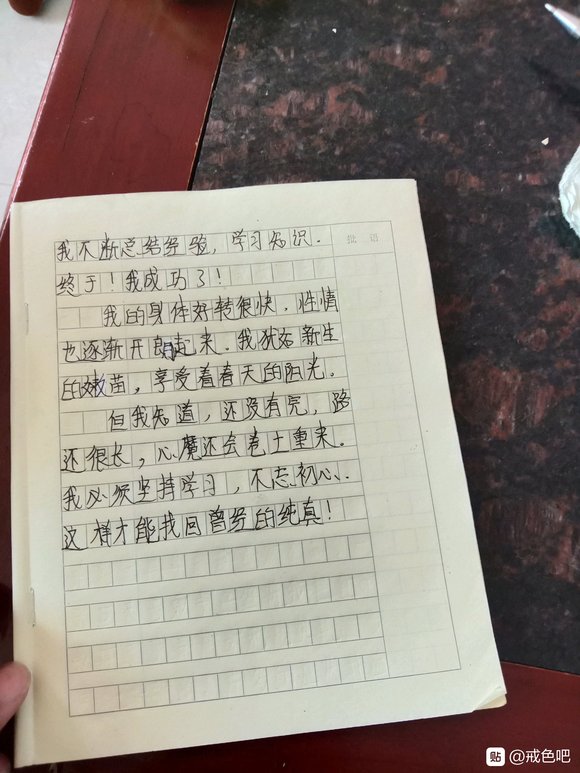 批语
我不断总结经验，学习知识.
终于！我成功了！
我的身体好转很快．性情
也逐渐开朗起来．我犹如新生
的嫩苗，享受着春天的阳光。
但我知道，还没有完，路
还很长，心魔还会卷土重来。
我必须坚持学习，不忘初心、
这样才能找回曾经的纯真！
贴 @戒色吧